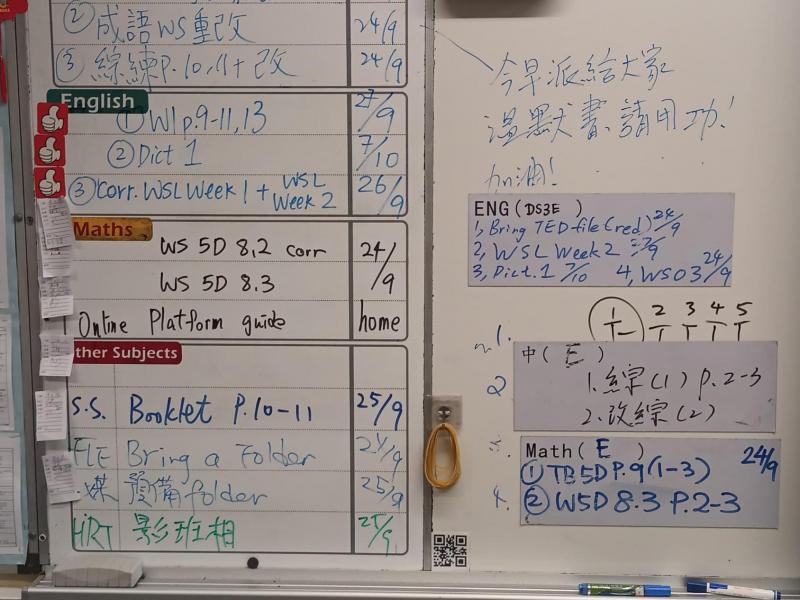 ② 成語WS重改 24/9
③ 綜練P.10,11+改 24/9
English
① W1p.9-11,13 27/9
② Dict 1 7/10
③ Corr. WSL Week 1 + WSL Week 2 26/9
Maths
WS 5D 8,2 corr 24/9
WS 5D 8.3
Online Platform guide home
ther Subjects
S.S. Booklet P.10-11 25/9
Bring a Folder
預備folder 25/9
HRT 影班相 25/9
今早派給大家
溫默書、請用功!
加油!
ENG (DS3E)
1, Bring TED file (red) 24/9
2, WSL Week 2
3, Dict. 1 7/10 4, WS03 24/9
1 2 3 4 5
T T T T T
1.
中 (E)
2
1. 綜(1) p.2-3
2. 改綜(2)
Math (E) 24/9
① TB5D P.9(1-3)
4. ② W5D 8.3 P.2-3